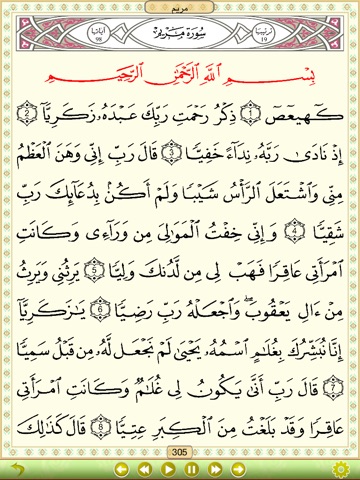 مريم
ترتيبها ١٩ سُورَةُ مَرْيَم آياتها ٩٨
بِسْمِ ٱللَّهِ ٱلرَّحْمَٰنِ ٱلرَّحِيمِ
كٓهيعٓصٓ ١ ذِكْرُ رَحْمَتِ رَبِّكَ عَبْدَهُۥ زَكَرِيَّآ ٢
إِذْ نَادَىٰ رَبَّهُۥ نِدَآءً خَفِيًّا ٣ قَالَ رَبِّ إِنِّى وَهَنَ ٱلْعَظْمُ
مِنِّى وَٱشْتَعَلَ ٱلرَّأْسُ شَيْبًا وَلَمْ أَكُنۢ بِدُعَآئِكَ رَبِّ
شَقِيًّا ٤ وَإِنِّى خِفْتُ ٱلْمَوَٰلِىَ مِن وَرَآءِى وَكَانَتِ
ٱمْرَأَتِى عَاقِرًا فَهَبْ لِى مِن لَّدُنكَ وَلِيًّا ٥ يَرِثُنِى وَيَرِثُ
مِنْ ءَالِ يَعْقُوبَ ۖ وَٱجْعَلْهُ رَبِّ رَضِيًّا ٦ يَٰزَكَرِيَّآ
إِنَّا نُبَشِّرُكَ بِغُلَٰمٍ ٱسْمُهُۥ يَحْيَىٰ لَمْ نَجْعَل لَّهُۥ مِن قَبْلُ سَمِيًّا
٧ قَالَ رَبِّ أَنَّىٰ يَكُونُ لِى غُلَٰمٌ وَكَانَتِ ٱمْرَأَتِى
عَاقِرًا وَقَدْ بَلَغْتُ مِنَ ٱلْكِبَرِ عِتِيًّا ٨ قَالَ كَذَٰلِكَ
305